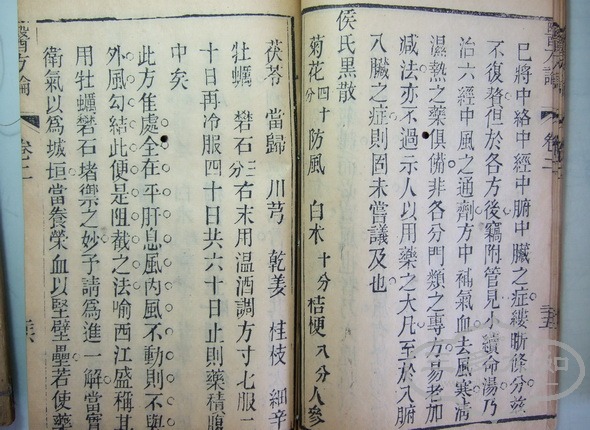 已將中絡中經中腑中臟之症縷晰條分茲
不復贅但於各方後竊附管見小續命湯乃
治六經中風之通劑方中補氣血去風寒清
濕熱之藥俱備非各分門類之專方易老加
減法亦不過示人以用藥之大凡至於入腑
入臟之症則固未嘗議及也
侯氏黑散
菊花四十分 防風 白朮十分 桔梗八分 人參
茯苓 當歸 川芎 乾姜 桂枝 細辛
牡蠣 礬石三分 右末用温酒調方寸七服二
十日再冷服四十日共六十日止則藥積腹
中矣
此方隹處全在平肝息風内風不動則不與
外風勾結此便是阻截之法喻西江盛稱其
用牡蠣礬石堵禦之妙予請為進一解當實
衛氣以為城垣當養榮血以堅壁壘若使藥
醫方論
卷二